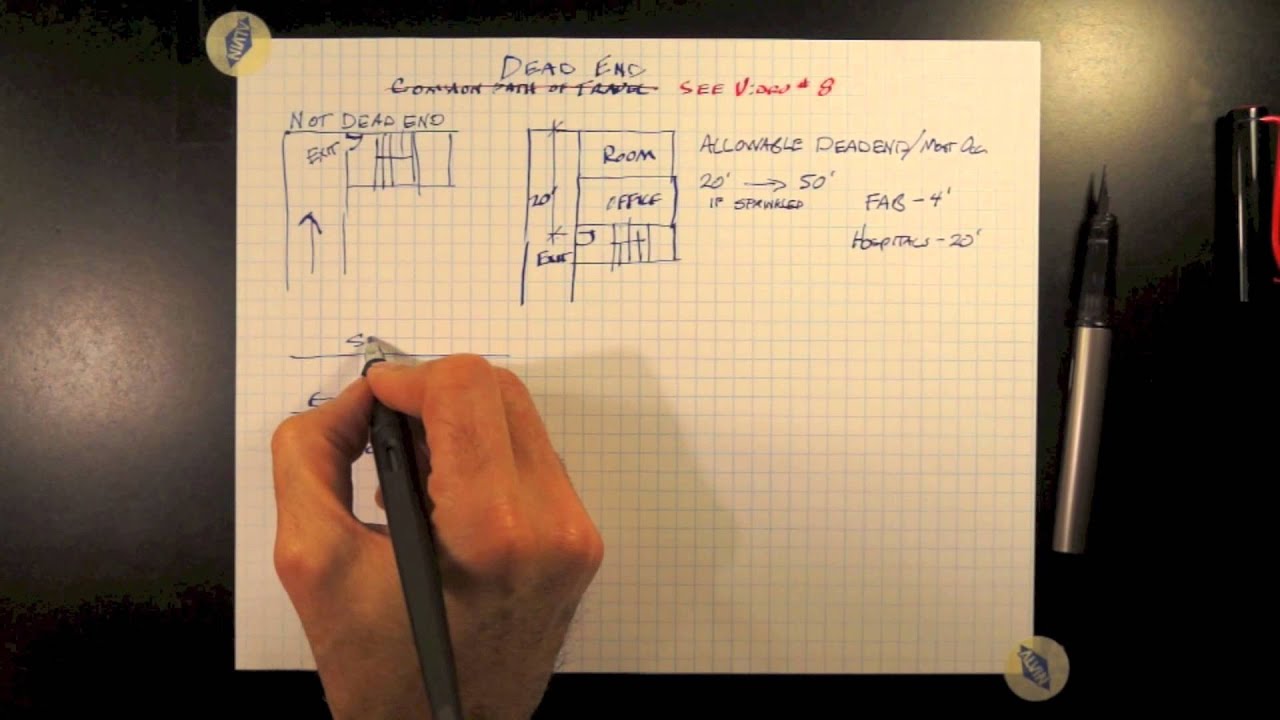 ALVIN
DEAD END
COMMON PATH OF TRAVEL SEE VIDEO # 8
NOT DEAD END
EXIT
ROOM
20'
OFFICE
EXIT
ALLOWABLE DEADEND/MOST OCC
20' → 50'
IF SPRINKLED
FAB - 4'
HOSPITALS - 20'
S
ALVIN